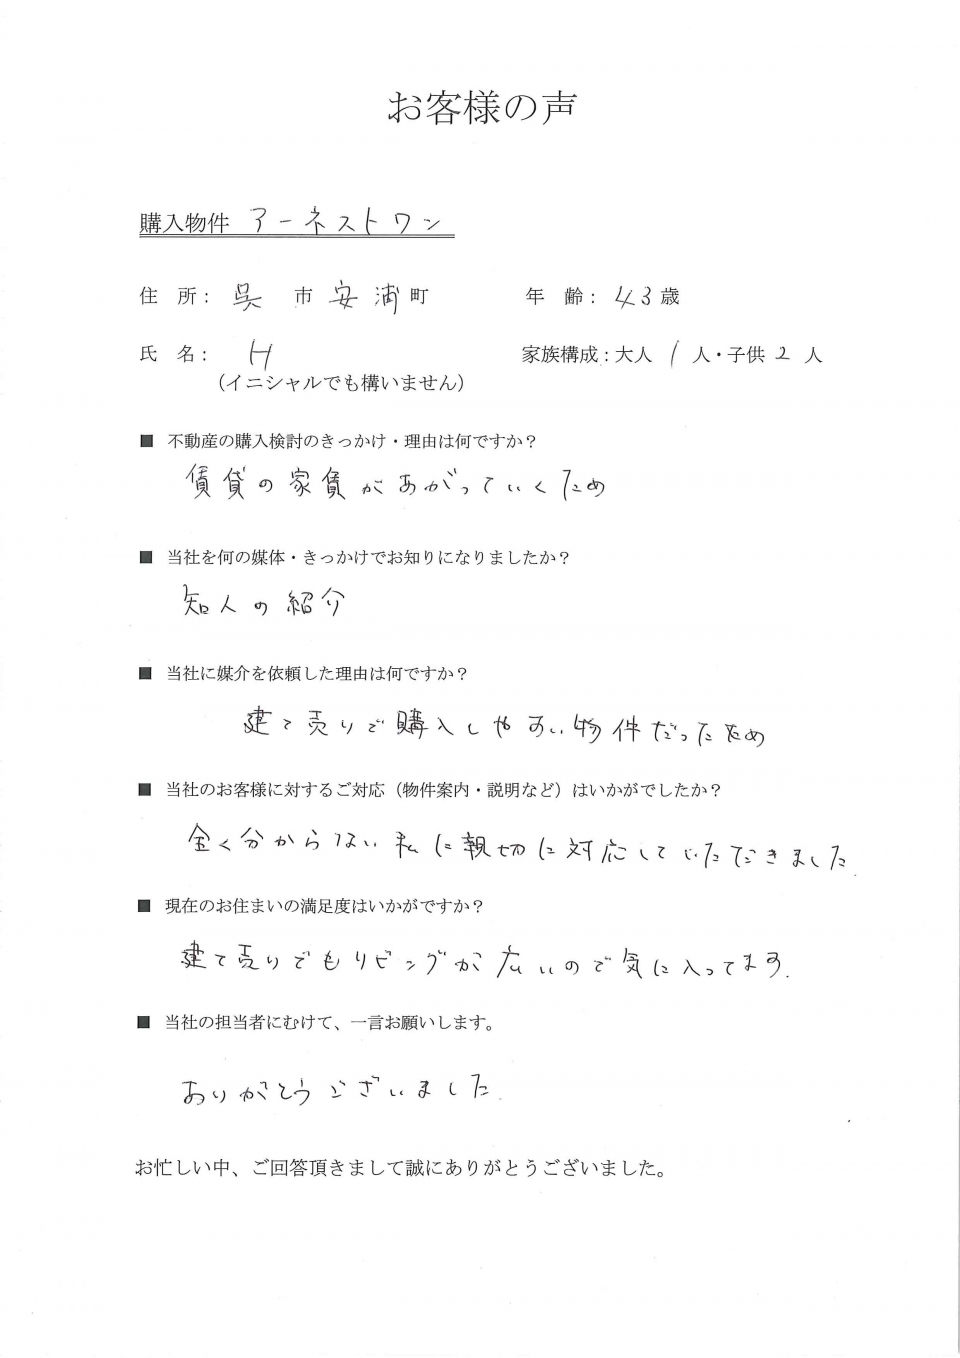 お客様の声
購入物件 アーネストワン
住 所： 呉 市 安浦 町 年 齢： 43 歳
氏 名： H 家族構成：大人 1 人・子供 2 人
（イニシャルでも構いません）
■ 不動産の購入検討のきっかけ・理由は何ですか？
賃貸の家賃があがっていくため
■ 当社を何の媒体・きっかけでお知りになりましたか？
知人の紹介
■ 当社に媒介を依頼した理由は何ですか？
建て売りで購入しやすい物件だったため
■ 当社のお客様に対するご対応（物件案内・説明など）はいかがでしたか？
全く分からない私に親切に対応していただきました.
■ 現在のお住まいの満足度はいかがですか？
建て売りでもリビングが広いので気に入ってます.
■ 当社の担当者にむけて、一言お願いします。
ありがとうございました.
お忙しい中、ご回答頂きまして誠にありがとうございました。